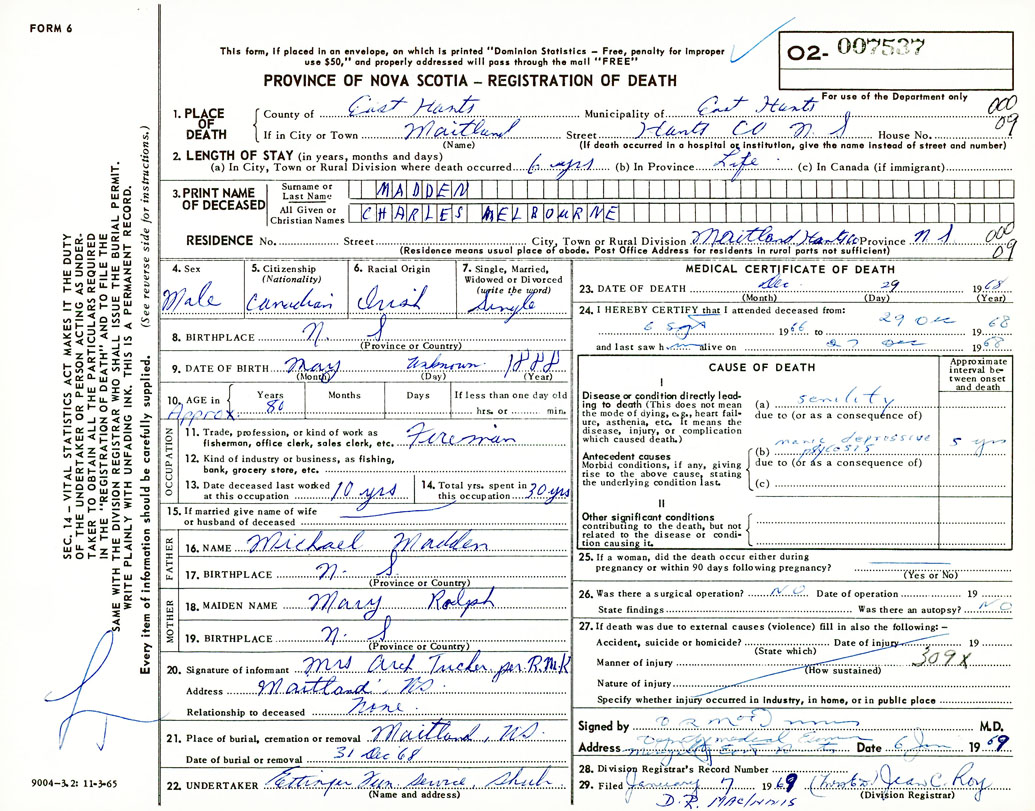 FORM 6
This form, if placed in an envelope, on which is printed "Dominion Statistics – Free, penalty for improper
use $50," and properly addressed will pass through the mail "FREE"
02- 007537
For use of the Department only
PROVINCE OF NOVA SCOTIA – REGISTRATION OF DEATH
1. PLACE OF DEATH
County of East Hants Municipality of East Hants 000
If in City or Town Maitland Street Hants Co N. S House No. 09
(Name) (If death occurred in a hospital or institution, give the name instead of street and number)
2. LENGTH OF STAY (in years, months and days)
(a) In City, Town or Rural Division where death occurred 6 yrs (b) In Province Life (c) In Canada (if immigrant)
3. PRINT NAME OF DECEASED
Surname or Last Name MADDEN
All Given or Christian Names CHARLES MELBOURNE
RESIDENCE No. Street City, Town or Rural Division Maitland Hants Co Province N S 000
(Residence means usual place of abode. Post Office Address for residents in rural parts not sufficient) 09
4. Sex Male
5. Citizenship (Nationality) Canadian
6. Racial Origin Irish
7. Single, Married, Widowed or Divorced (write the word) Single
8. BIRTHPLACE N. S
(Province or Country)
9. DATE OF BIRTH May Unknown 1888
(Month) (Day) (Year)
10. AGE in Years Months Days If less than one day old
Approx. 80 hrs. or min.
OCCUPATION
11. Trade, profession, or kind of work as
fisherman, office clerk, sales clerk, etc. Fireman
12. Kind of industry or business, as fishing,
bank, grocery store, etc.
13. Date deceased last worked
at this occupation 10 yrs
14. Total yrs. spent in
this occupation 30 yrs
15. If married give name of wife
or husband of deceased
FATHER
16. NAME Michael Madden
17. BIRTHPLACE N. S.
(Province or Country)
MOTHER
18. MAIDEN NAME Mary Rolph
19. BIRTHPLACE N. S
(Province or Country)
20. Signature of informant Mrs Arch Tucker per. R.McK
Address Maitland, NS.
Relationship to deceased None.
21. Place of burial, cremation or removal Maitland, NS.
Date of burial or removal 31 Dec 68
22. UNDERTAKER Ettinger Fun Service,
(Name and address)
MEDICAL CERTIFICATE OF DEATH
23. DATE OF DEATH Dec 29 1968
(Month) (Day) (Year)
24. I HEREBY CERTIFY that I attended deceased from:
6 Sept 1966 to 29 Dec 1968
and last saw h alive on 27 Dec 1968
CAUSE OF DEATH
Approximate interval between onset and death
I
Disease or condition directly leading to death (This does not mean the mode of dying, e.g., heart failure, asthenia, etc. It means the disease, injury, or complication which caused death.)
(a) senility
due to (or as a consequence of)
Antecedent causes
Morbid conditions, if any, giving rise to the above cause, stating the underlying condition last.
(b) manic depressive 5 yrs
psycosis
due to (or as a consequence of)
(c)
II
Other significant conditions
contributing to the death, but not related to the disease or condition causing it.
25. If a woman, did the death occur either during
pregnancy or within 90 days following pregnancy?
(Yes or No)
26. Was there a surgical operation? NO Date of operation 19
State findings Was there an autopsy? NO
27. If death was due to external causes (violence) fill in also the following: –
Accident, suicide or homicide? Date of injury 19
(State which)
Manner of injury 309X
(How sustained)
Nature of injury
Specify whether injury occurred in industry, in home, or in public place
Signed by M.D.
Address Date 6 Jan 1969
28. Division Registrar's Record Number
29. Filed January 7 1969 Jean C. Roy
(Division Registrar)
D.R. MacInnis
9004-3.2: 11-3-65
SEC. 14 – VITAL STATISTICS ACT MAKES IT THE DUTY
OF THE UNDERTAKER OR PERSON ACTING AS UNDER-
TAKER TO OBTAIN ALL THE PARTICULARS REQUIRED
IN THE "REGISTRATION OF DEATH" AND TO FILE THE
SAME WITH THE DIVISION REGISTRAR WHO SHALL ISSUE THE BURIAL PERMIT.
WRITE PLAINLY WITH UNFADING INK. THIS IS A PERMANENT RECORD.
Every item of information should be carefully supplied. (See reverse side for instructions.)